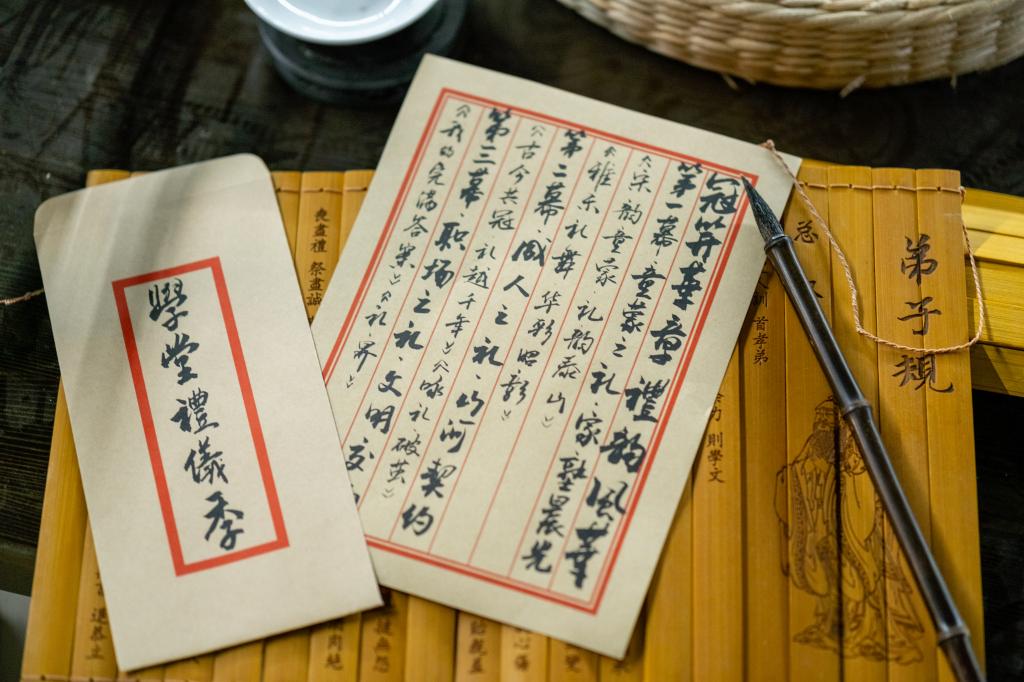 弟子規
总
訓 首孝弟
則學文
冠笄華章 禮韵風華
第一幕·童蒙之礼·家塾晨光
《宋韵童蒙 礼韵泰山》
《雅乐礼舞 华彩昭彰》
第二幕·成人之礼·山河契约
《古今共冠 礼越千年》《咏礼破茧》
第三幕·职场之礼·文明交
《我的完满答案》《礼界》
喪盡禮 祭盡誠
學堂禮儀季